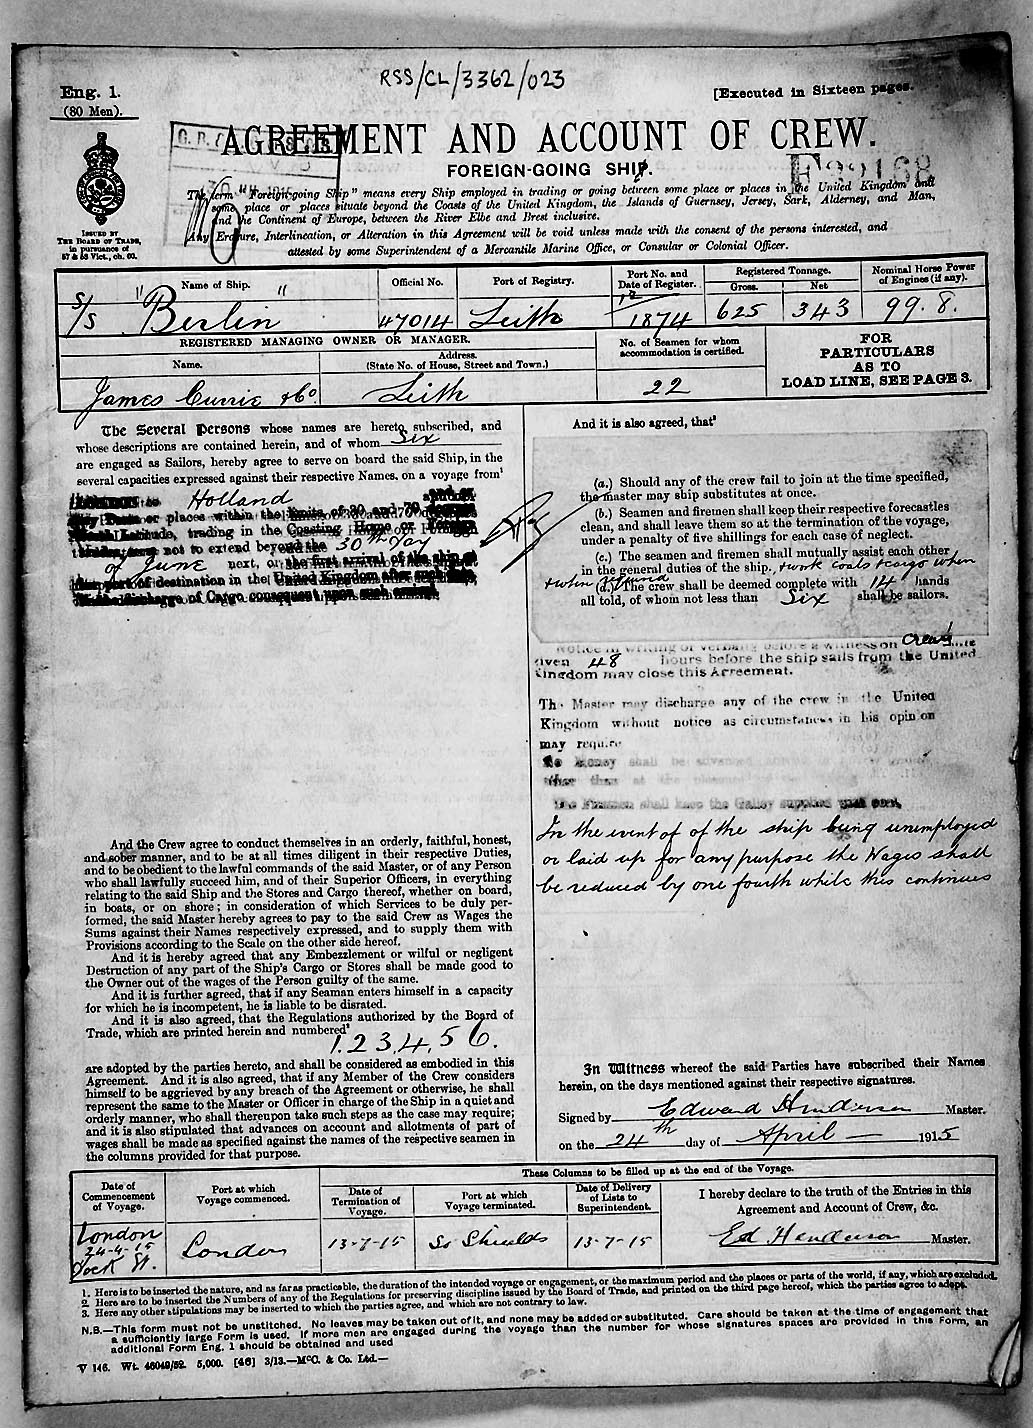 RSS/CL/3362/023
Eng. 1.
(80 Men).
[Executed in Sixteen pages.
AGREEMENT AND ACCOUNT OF CREW.
FOREIGN-GOING SHIP.
F22168
The term "Foreign-going Ship" means every Ship employed in trading or going between some place or places in the United Kingdom and
some place or places situate beyond the Coasts of the United Kingdom, the Islands of Guernsey, Jersey, Sark, Alderney, and Man,
and the Continent of Europe, between the River Elbe and Brest inclusive.
Any Erasure, Interlineation, or Alteration in this Agreement will be void unless made with the consent of the persons interested, and
attested by some Superintendent of a Mercantile Marine Office, or Consular or Colonial Officer.
ISSUED BY
THE BOARD OF TRADE,
in pursuance of
57 & 58 Vict., ch. 60.
Name of Ship.
Official No.
Port of Registry.
Port No. and
Date of Register.
Registered Tonnage.
Gross.
Net
Nominal Horse Power
of Engines (if any).
S/S "Berlin"
47014
Leith
1874
625
343
99.8.
REGISTERED MANAGING OWNER OR MANAGER.
Name.
Address.
(State No. of House, Street and Town.)
No. of Seamen for whom
accommodation is certified.
FOR
PARTICULARS
AS TO
LOAD LINE, SEE PAGE 3.
James Currie & Co.
Leith
22
The Several Persons whose names are hereto subscribed, and
whose descriptions are contained herein, and of whom Six
are engaged as Sailors, hereby agree to serve on board the said Ship, in the
several capacities expressed against their respective Names, on a voyage from¹
LONDON to Holland
or places within the limits of 30 and 70
trading in the Coasting Home or Foreign
not to extend beyond the 30th day
of June next, or the first arrival of the ship at
port of destination in the United Kingdom after such
discharge of Cargo consequent upon such
And the Crew agree to conduct themselves in an orderly, faithful, honest,
and sober manner, and to be at all times diligent in their respective Duties,
and to be obedient to the lawful commands of the said Master, or of any Person
who shall lawfully succeed him, and of their Superior Officers, in everything
relating to the said Ship and the Stores and Cargo thereof, whether on board,
in boats, or on shore; in consideration of which Services to be duly per-
formed, the said Master hereby agrees to pay to the said Crew as Wages the
Sums against their Names respectively expressed, and to supply them with
Provisions according to the Scale on the other side hereof.
And it is hereby agreed that any Embezzlement or wilful or negligent
Destruction of any part of the Ship's Cargo or Stores shall be made good to
the Owner out of the wages of the Person guilty of the same.
And it is further agreed, that if any Seaman enters himself in a capacity
for which he is incompetent, he is liable to be disrated.
And it is also agreed, that the Regulations authorized by the Board of
Trade, which are printed herein and numbered²
1. 2 3, 4, 5 6.
are adopted by the parties hereto, and shall be considered as embodied in this
Agreement. And it is also agreed, that if any Member of the Crew considers
himself to be aggrieved by any breach of the Agreement or otherwise, he shall
represent the same to the Master or Officer in charge of the Ship in a quiet and
orderly manner, who shall thereupon take such steps as the case may require;
and it is also stipulated that advances on account and allotments of part of
wages shall be made as specified against the names of the respective seamen in
the columns provided for that purpose.
And it is also agreed, that³
(a.) Should any of the crew fail to join at the time specified,
the master may ship substitutes at once.
(b.) Seamen and firemen shall keep their respective forecastles
clean, and shall leave them so at the termination of the voyage,
under a penalty of five shillings for each case of neglect.
(c.) The seamen and firemen shall mutually assist each other
in the general duties of the ship, & work coals & cargo when
& where required
(d.) The crew shall be deemed complete with 14 hands
all told, of whom not less than Six shall be sailors.
Notice in writing or verbally before a witness on Crew's
given 48 hours before the ship sails from the United
Kingdom may close this Agreement.
The Master may discharge any of the crew in the United
Kingdom without notice as circumstances in his opinion
may require
No money shall be advanced
other than at the
The Firemen shall keep the Galley supplied
In the event of of the ship being unemployed
or laid up for any purpose the Wages shall
be reduced by one fourth while this continues
In Witness whereof the said Parties have subscribed their Names
herein, on the days mentioned against their respective signatures.
Signed by Edward Henderson Master.
on the 24th day of April 1915
These Columns to be filled up at the end of the Voyage.
Date of
Commencement
of Voyage.
Port at which
Voyage commenced.
Date of
Termination of
Voyage.
Port at which
Voyage terminated.
Date of Delivery
of Lists to
Superintendent.
I hereby declare to the truth of the Entries in this
Agreement and Account of Crew, &c.
London
24-4-15
Dock St.
London
13-7-15
So Shields
13-7-15
Ed Henderson Master.
1. Here is to be inserted the nature, and as far as practicable, the duration of the intended voyage or engagement, or the maximum period and the places or parts of the world, if any, which are excluded.
2. Here are to be inserted the Numbers of any of the Regulations for preserving discipline issued by the Board of Trade, and printed on the third page hereof, which the parties agree to adopt.
3. Here any other stipulations may be inserted to which the parties agree, and which are not contrary to law.
N.B.—This form must not be unstitched. No leaves may be taken out of it, and none may be added or substituted. Care should be taken at the time of engagement that
a sufficiently large Form is used. If more men are engaged during the voyage than the number for whose signatures spaces are provided in this Form, an
additional Form Eng. 1 should be obtained and used
V 146. Wt. 46049/52. 5,000. [46] 3/13.—McC. & Co. Ltd.—